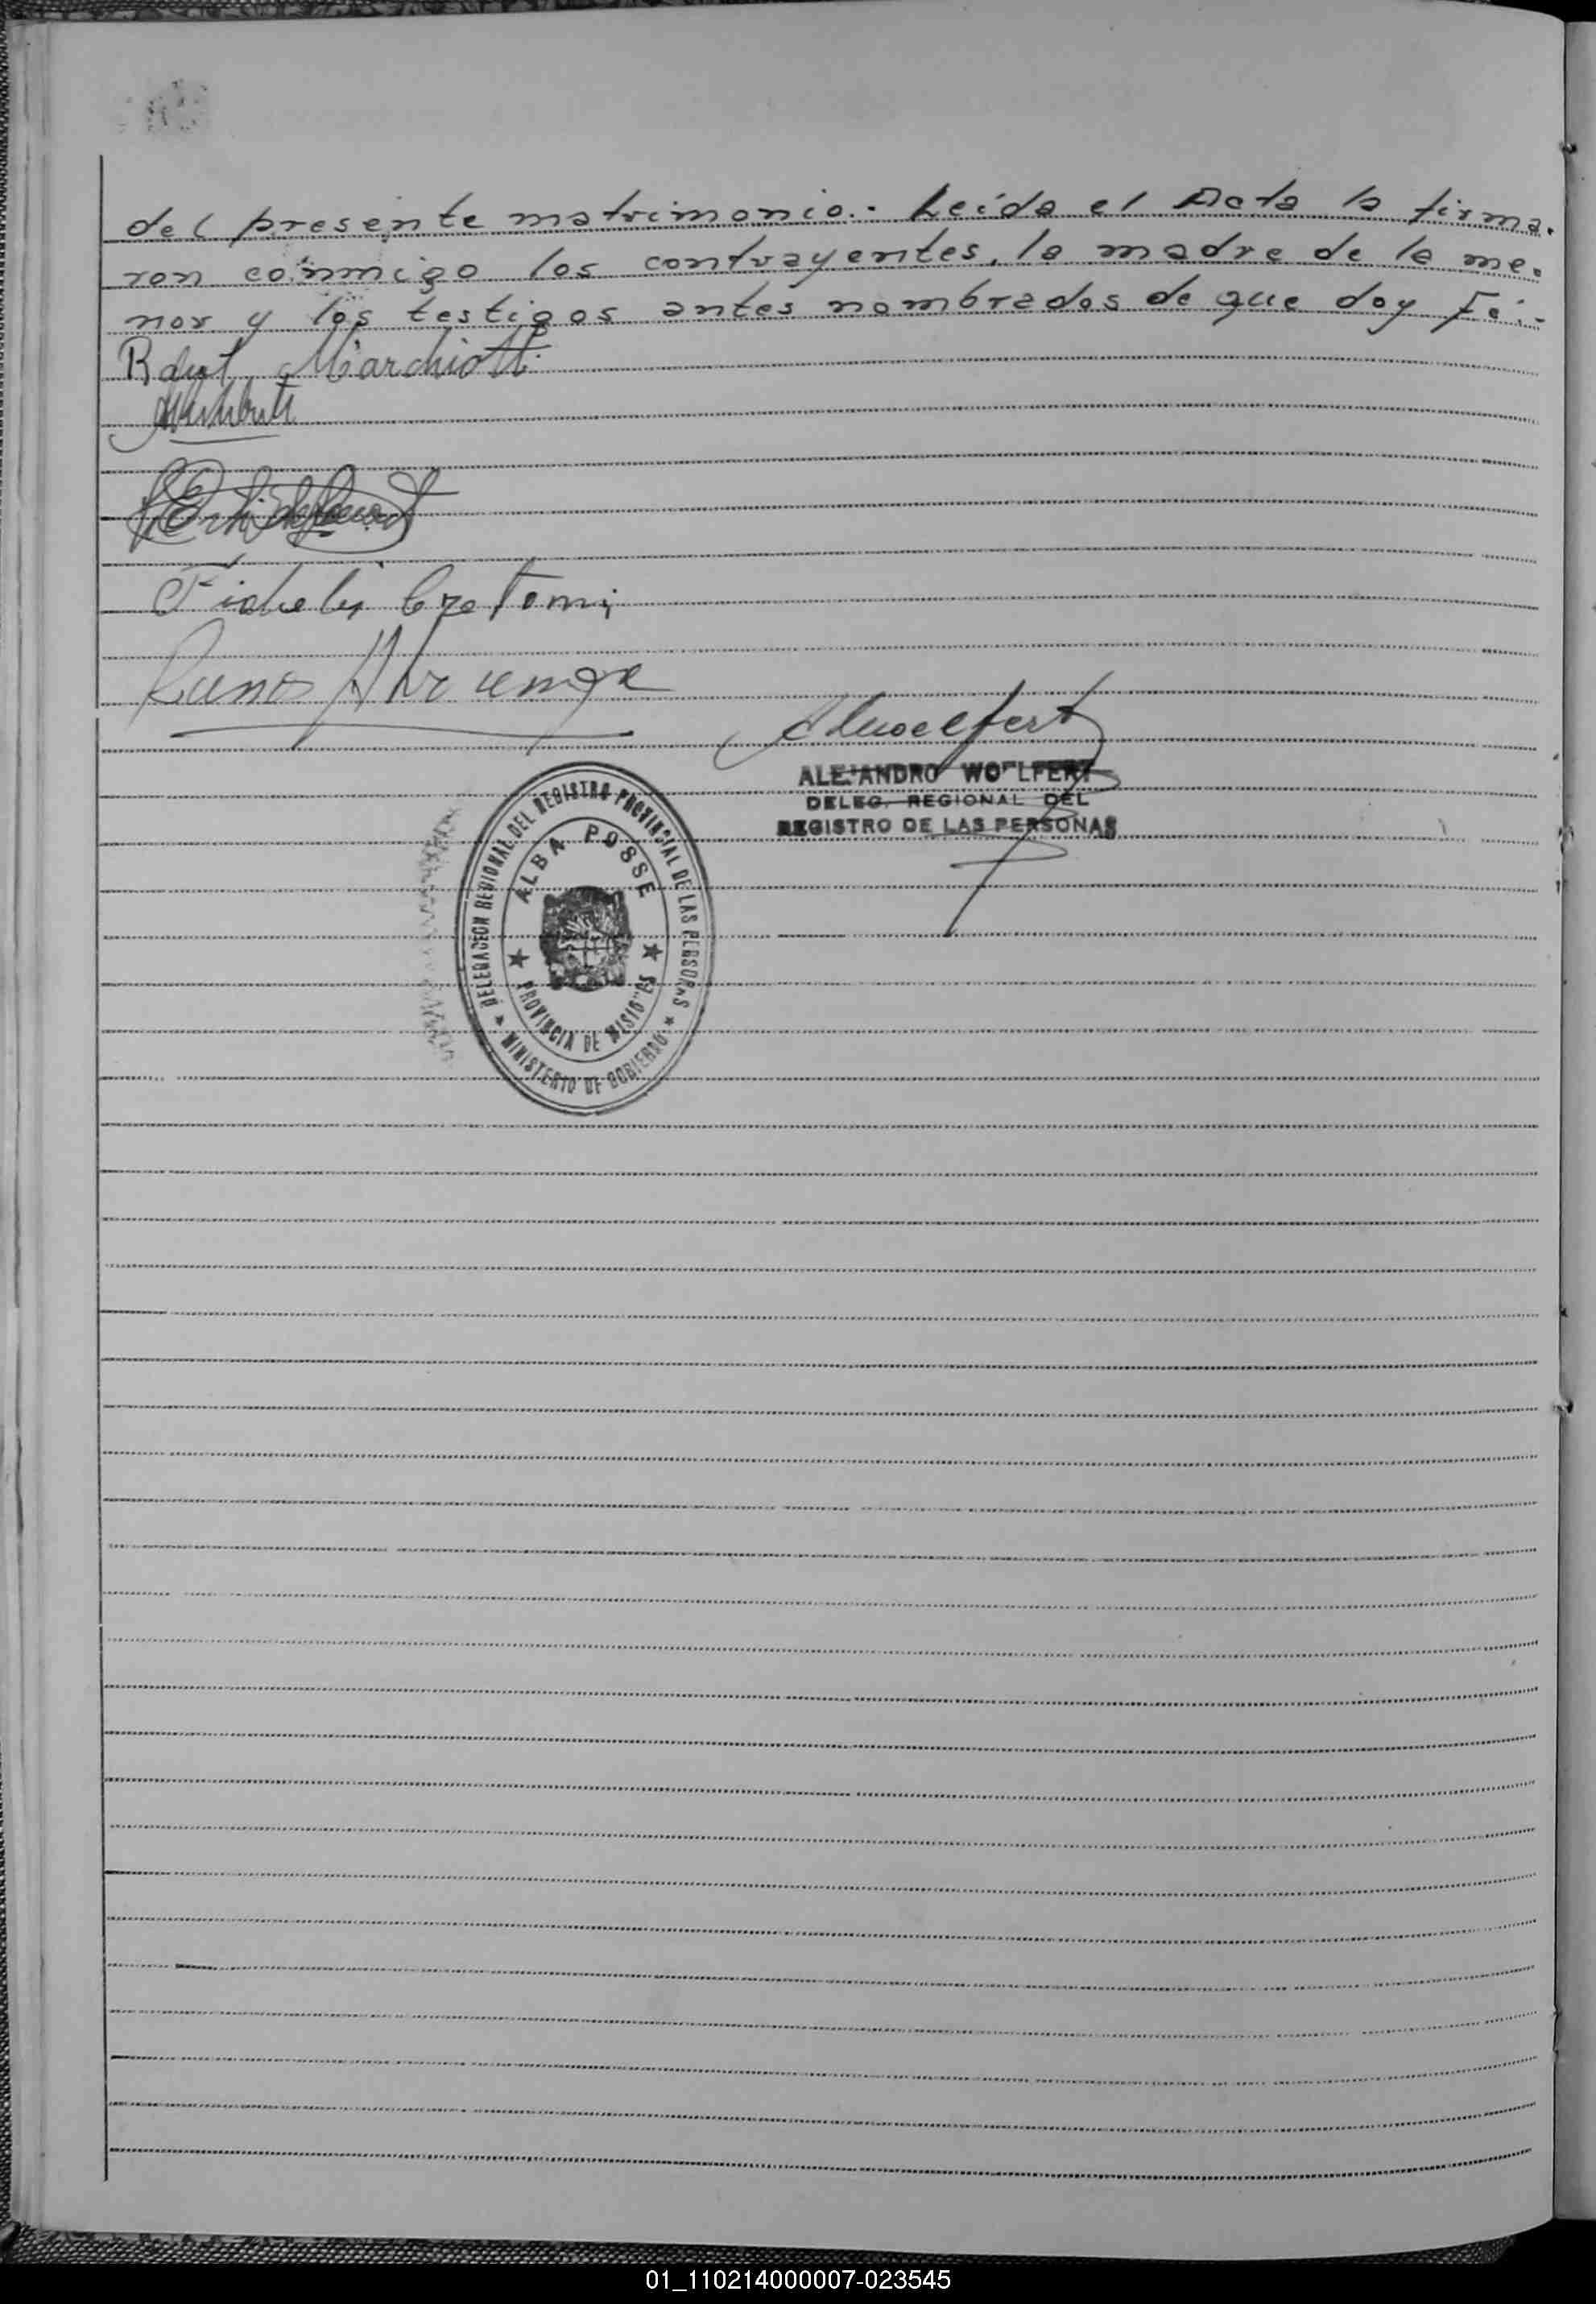 del presente matrimonio.- Leída el Acta la firma-
ron conmigo los contrayentes, la madre de la me-
nor y los testigos antes nombrados de que doy Fé.-
Marchiotti
Fidelis Cretoni
Ramos
AWoelfert
ALEJANDRO WOELFERT
DELEG. REGIONAL DEL
REGISTRO DE LAS PERSONAS
DELEGACION REGIONAL DEL REGISTRO PROVINCIAL DE LAS PERSONAS
ALBA POSSE
PROVINCIA DE MISIONES
MINISTERIO DE GOBIERNO
01_110214000007-023545